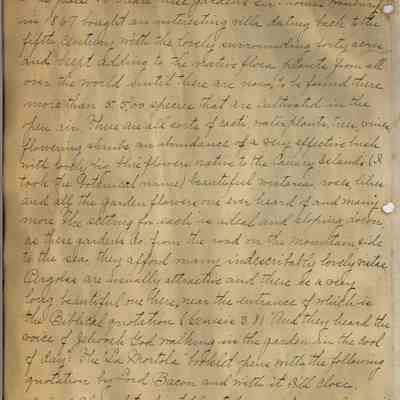 gardens Sir Thomas Hanbury
in 1867 bought an interesting villa dating back to the
fifth century with the lovely surrounding forty acres
and kept adding to the native flora plants from all
over the world until there are now to be found there
more than 5500 species that are cultivated in the
open air. There are all sorts of cacti, water plants, trees, vines
flowering shrubs an abundance of a very effective bush
with lovely big blue flowers native to the Canary Islands (I
took the Botanical name) beautiful wistaria, roses, lilies
and all the garden flowers one ever heard of and many
more. The setting for each is ideal and sloping down,
as these gardens do from the road on the mountain side
to the sea, they afford many indescribably lovely vistas
Pergolas are usually attractive and there is a very
long beautiful one here, near the entrance of which is
the Biblical quotation (Genesis 3.8) "And they heard the
voice of Jehovah God walking in the garden in the cool
of day". The "La Mortola" booklet opens with the following
quotation by Lord Bacon and with it I'll close.